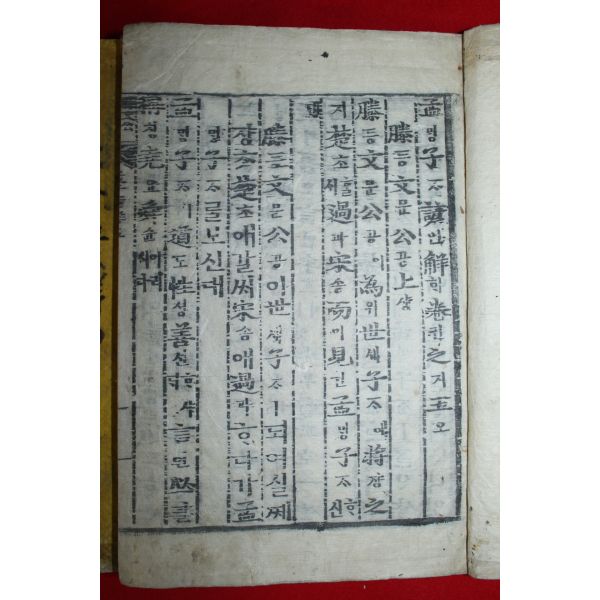 孟ᄆᆡᆼ子ᄌᆞ諺언解ᄒᆡ卷권之지五오
滕등文문公공上샹
滕등文문公공이爲위世셰子ᄌᆞ애將쟝之
지楚초ᄒᆞᆯᄉᆡ過과宋송而이見견孟ᄆᆡᆼ子ᄌᆞᄒᆞ신
대
滕등文문公공이世셰子ᄌᆞㅣ도여실ᄶᅢ
쟝ᄎᆞᆺ楚초애갈ᄊᆡ宋송애過과ᄒᆞᆫ다가孟
ᄆᆡᆼ子ᄌᆞᄅᆞᆯ보신대
孟ᄆᆡᆼ子ᄌᆞㅣ道도性셩善션ᄒᆞ샤ᄃᆡ言언必필
稱칭堯요舜슌이러시다